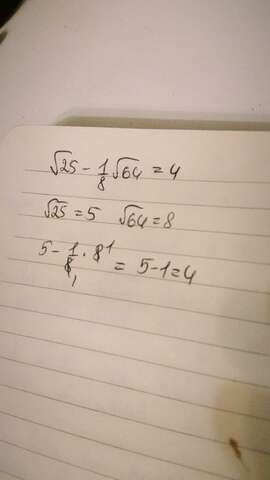 √25 - 1/8 √64 = 4
√25 = 5 √64 = 8
5 - 1/8 · 8 = 5 - 1 = 4